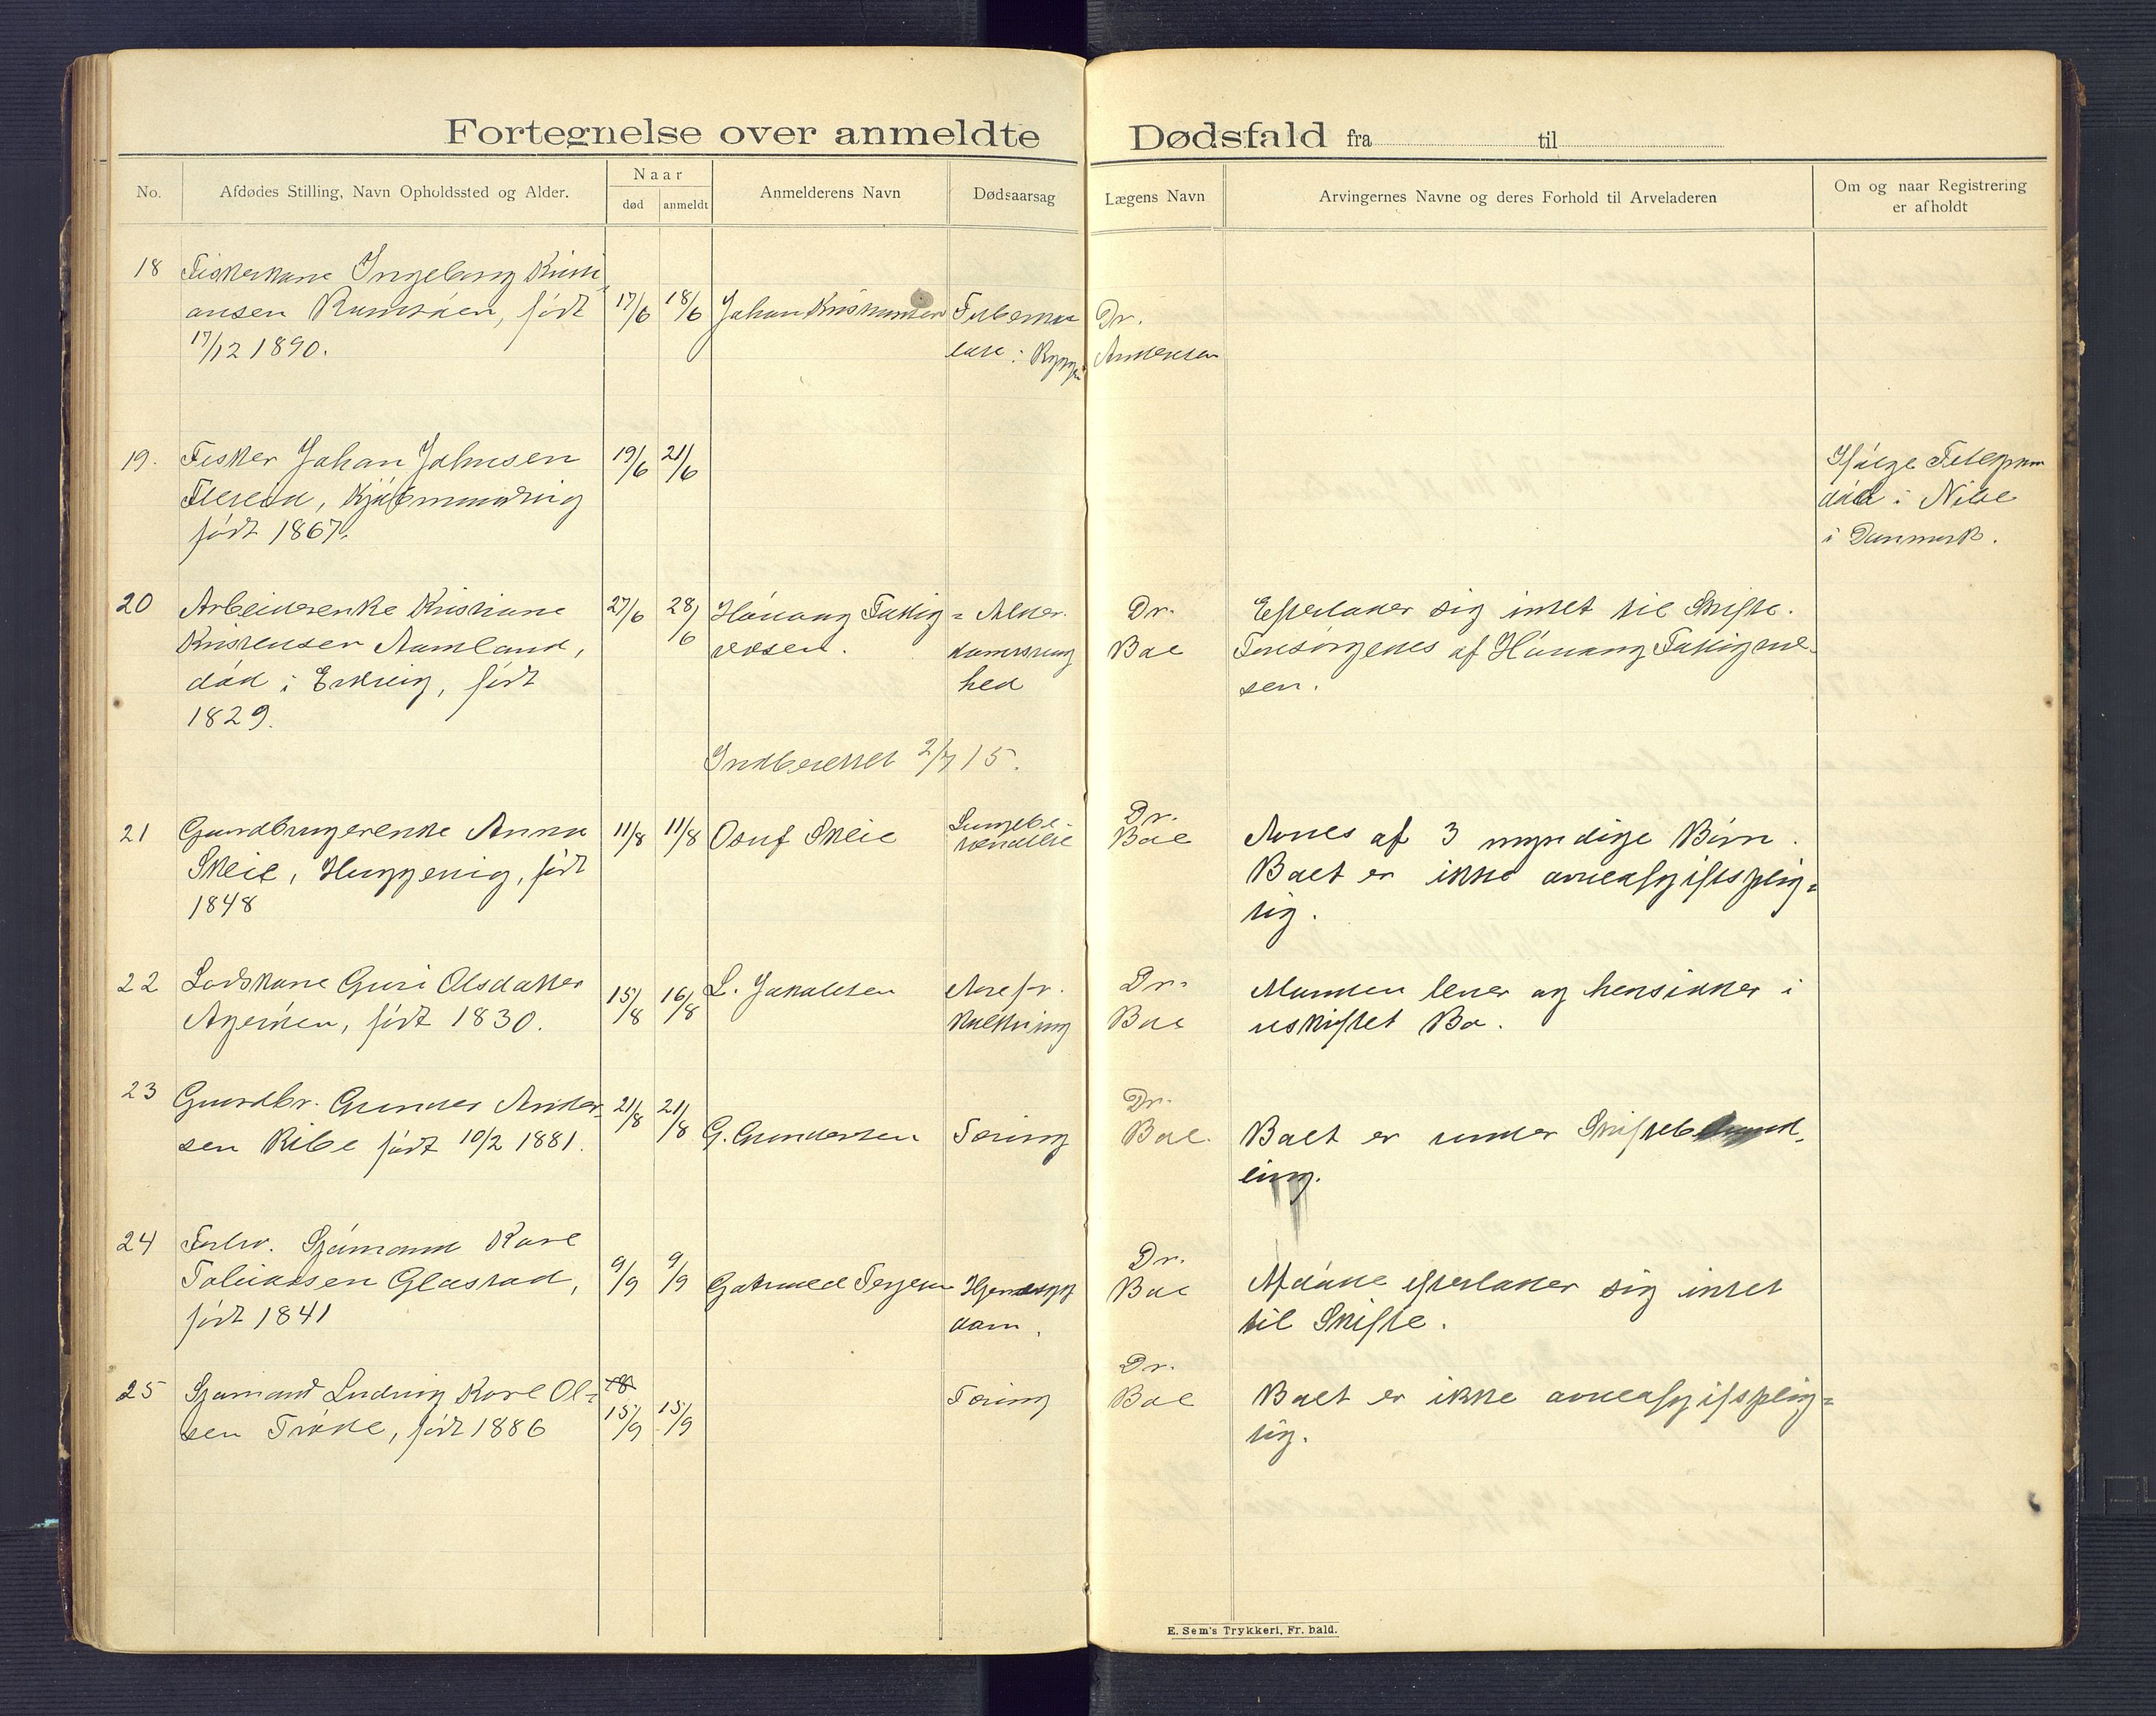 Fortegnelse over anmeldte Dødsfald fra til
No.
Afdødes Stilling, Navn Opholdssted og Alder.
Naar
død
anmeldt
Anmelderens Navn
Dødsaarsag
Lægens Navn
Arvingernes Navne og deres Forhold til Arveladeren
Om og naar Registrering
er afholdt
18 Fiskerkone Ingeborg Kristi
ansen født
17/12 1890.
17/6 18/6 Johan Kristiansen
Tuberku
lose i Ryggen
Dr.
Andersen
19. Fisker Johan Johnsen
født 1867.
19/6 21/6
Ifølge Telegram
død i Nibe
i Danmark.
20 Arbeiderenke Kristiane
Kristensen Aamland,
død i Erkreig, født
1829.
27/6 28/6
Høvaag Fattig=
væsen.
Alder
domssvag
hed
Dr.
Boe
Efterlader sig intet til Skifte.
Forsørgedes af Høvaag Fattigvæ
sen.
Indberettet 2/7 15.
21 Gaardbrugerenke Anna
Skeie, Huggenig, født
1848
11/8 11/8 Osuf Skeie
Lungebe-
tændelse
Dr.
Boe
Arves af 3 myndige Børn.
Boet er ikke arveafgiftsplig=
tig.
22 Lodskone Guri Olsdatter
Agerøen, født 1830.
15/8 16/8 L. Jakobsen
Aarefor
kalkning
Dr.
Boe
Manden lever og hensidder i
uskiftet Bo.
23 Gaardbr. Gunder Ander
sen Ribe født 10/2 1881.
21/8 21/8
G. Gundersen
Tæring
Dr.
Boe.
Boet er under Skiftebehand
ling.
24 Forhv. Sjømand Karl
Tobiassen Glastad,
født 1841
9/9 9/9 Gotmed Terjesen
Hjertesyg
dom.
Dr.
Boe
Afdøde efterlader sig intet
til Skifte.
25 Sjømand Ludvig Karl Ol=
sen Trøde, født 1886
18
15/9 15/9
Tæring
Dr.
Boe
Boet er ikke arveafgiftsplig=
tig.
E. Sem's Trykkeri, Fr. hald.